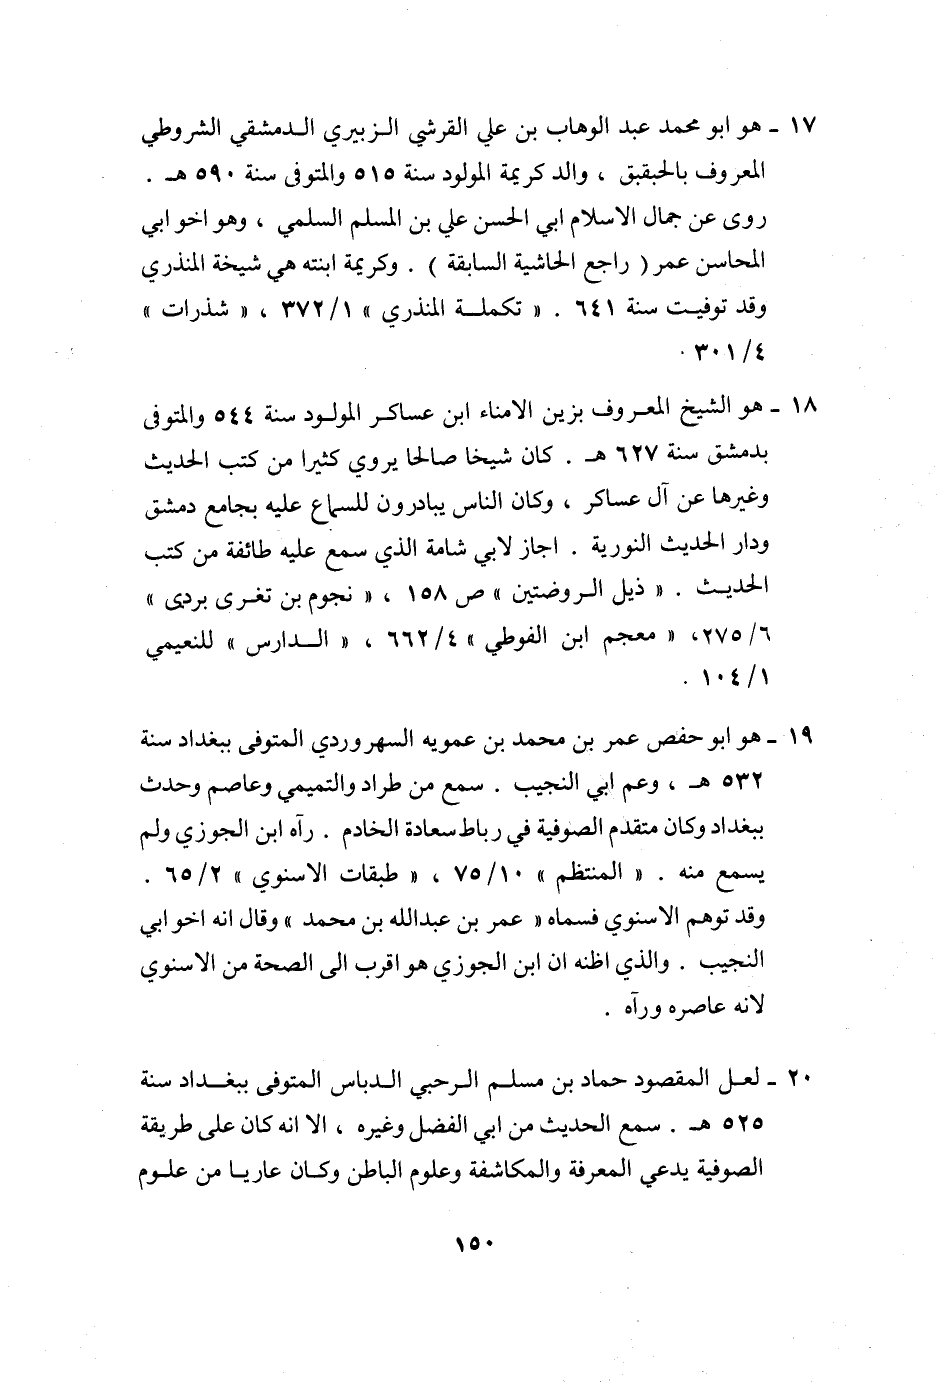 ١٧ ـ هو ابو محمد عبد الوهاب بن علي القرشي الزبيري الدمشقي الشروطي
المعروف بالحبقبق ، والد كريمة المولود سنة ٥١٥ والمتوفى سنة ٥٩٠ هـ .
روى عن جمال الاسلام ابي الحسن علي بن المسلم السلمي ، وهو اخو ابي
المحاسن عمر ( راجع الحاشية السابقة ) . وكريمة ابنته هي شيخة المنذري
وقد توفيت سنة ٦٤١ . « تكملة المنذري » ٣٧٢/١ ، « شذرات »
٣٠١/٤ .
١٨ ـ هو الشيخ المعروف بزين الامناء ابن عساكر المولود سنة ٥٤٤ والمتوفى
بدمشق سنة ٦٢٧ هـ . كان شيخا صالحا يروي كثيرا من كتب الحديث
وغيرها عن آل عساكر ، وكان الناس يبادرون للسماع عليه بجامع دمشق
ودار الحديث النورية . اجاز لابي شامة الذي سمع عليه طائفة من كتب
الحديث . « ذيل الروضتين » ص ١٥٨ ، « نجوم بن تغرى بردى »
٢٧٥/٦، « معجم ابن الفوطي » ٦٦٢/٤ ، « الدارس » للنعيمي
١٠٤/١ .
١٩ ـ هو ابو حفص عمر بن محمد بن عمويه السهروردي المتوفى ببغداد سنة
٥٣٢ هـ ، وعم ابي النجيب . سمع من طراد والتميمي وعاصم وحدث
ببغداد وكان متقدم الصوفية في رباط سعادة الخادم . رآه ابن الجوزي ولم
يسمع منه . « المنتظم » ٧٥/١٠ ، « طبقات الاسنوي » ٦٥/٢ .
وقد توهم الاسنوي فسماه « عمر بن عبدالله بن محمد » وقال انه اخو ابي
النجيب . والذي اظنه ان ابن الجوزي هو اقرب الى الصحة من الاسنوي
لانه عاصره ورآه .
٢٠ ـ لعل المقصود حماد بن مسلم الرحبي الدباس المتوفى ببغداد سنة
٥٢٥ هـ . سمع الحديث من ابي الفضل وغيره ، الا انه كان على طريقة
الصوفية يدعي المعرفة والمكاشفة وعلوم الباطن وكان عاريا من علوم
١٥٠